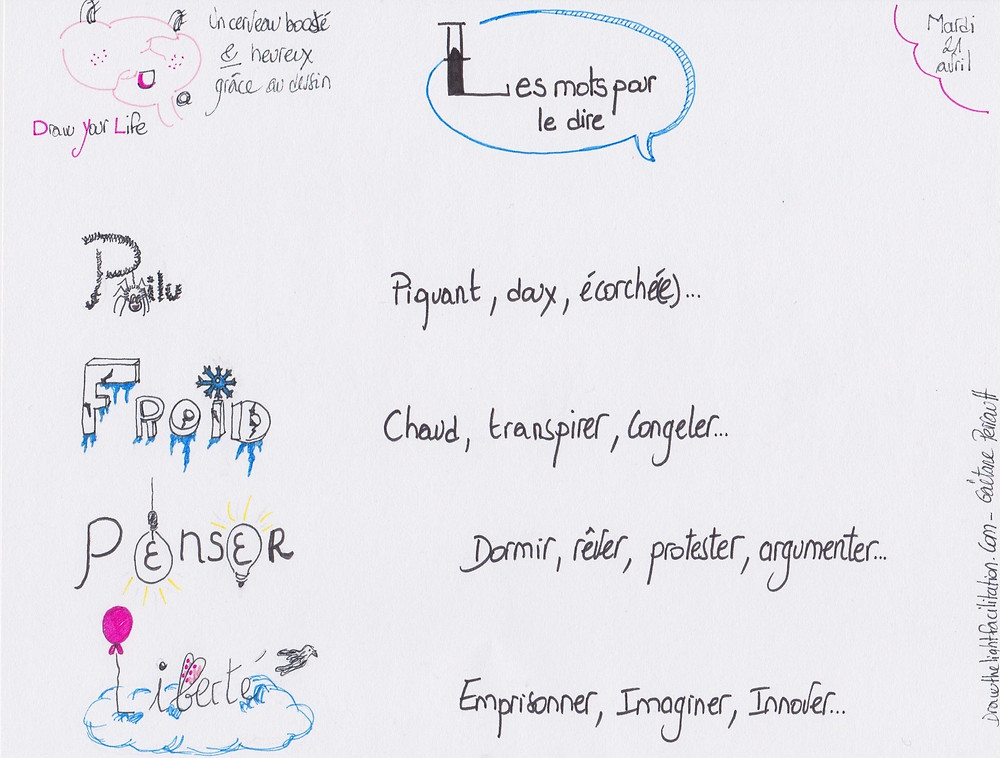 Un cerveau boosté
& heureux
grâce au dessin
Draw your Life
Les mots pour
le dire
Mardi
21
avril
Poilu
Piquant, doux, écorché(e)...
FROID
Chaud, transpirer, Congeler...
PENSER
Dormir, rêver, protester, argumenter...
Liberté
Emprisonner, Imaginer, Innover...
Drawthelightfacilitation.Com - Gaétane Perrault